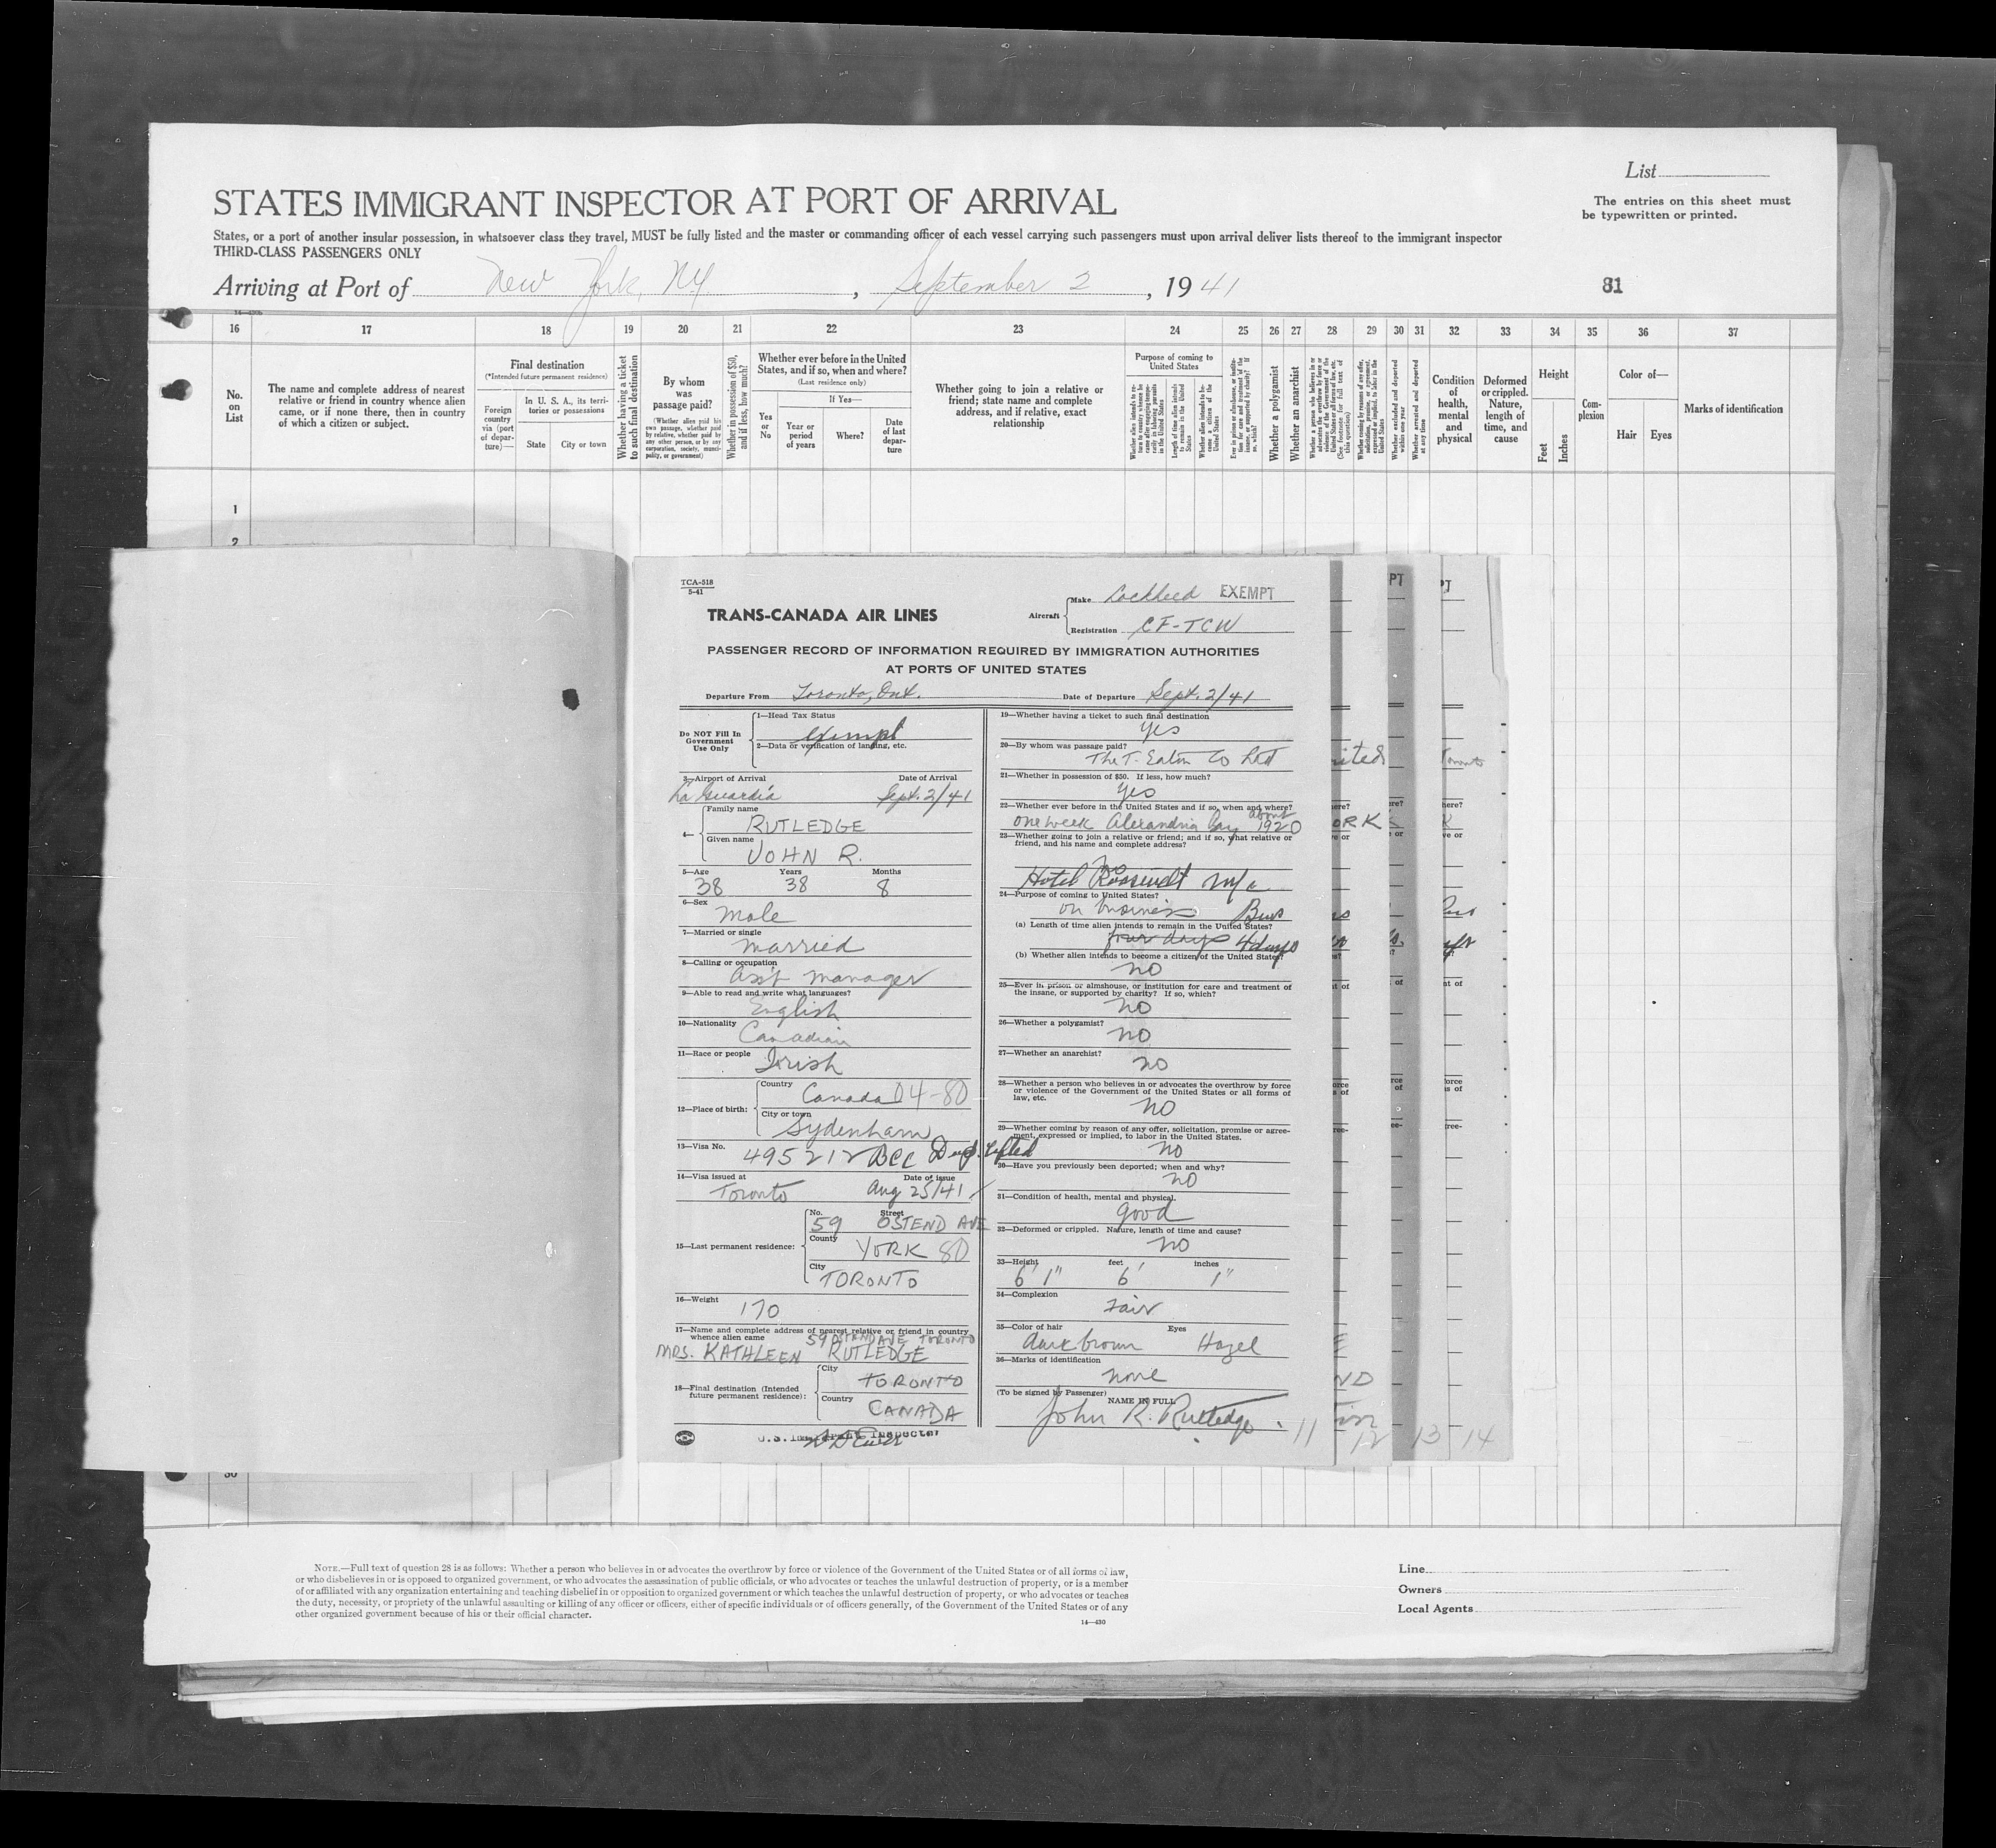 List
STATES IMMIGRANT INSPECTOR AT PORT OF ARRIVAL
The entries on this sheet must
be typewritten or printed.
States, or a port of another insular possession, in whatsoever class they travel, MUST be fully listed and the master or commanding officer of each vessel carrying such passengers must upon arrival deliver lists thereof to the immigrant inspector
THIRD-CLASS PASSENGERS ONLY
Arriving at Port of New York, NY, September 2, 1941
81
16 17 18 19 20 21 22 23 24 25 26 27 28 29 30 31 32 33 34 35 36 37
No. on List
The name and complete address of nearest
relative or friend in country whence alien
came, or if none there, then in country
of which a citizen or subject.
Final destination
(*Intended future permanent residence)
Foreign country via (port of departure)—
In U. S. A., its territories or possessions
State
City or town
Whether having a ticket to such final destination
By whom was passage paid?
(Whether alien paid his own passage, whether paid by relative, whether paid by any other person, or by any corporation, society, municipality, or government)
Whether in possession of $50, and if less, how much?
Whether ever before in the United
States, and if so, when and where?
(Last residence only)
Yes or No
If Yes—
Year or period of years
Where?
Date of last departure
Whether going to join a relative or
friend; state name and complete
address, and if relative, exact
relationship
Purpose of coming to
United States
Whether a polygamist
Whether an anarchist
Condition of health, mental and physical
Deformed or crippled. Nature, length of time, and cause
Height
Feet
Inches
Complexion
Color of—
Hair
Eyes
Marks of identification
1
2
TCA-518
5-41
TRANS-CANADA AIR LINES
Aircraft
Make Lockheed EXEMPT
Registration CF-TCW
PASSENGER RECORD OF INFORMATION REQUIRED BY IMMIGRATION AUTHORITIES
AT PORTS OF UNITED STATES
Departure From Toronto, Ont.
Date of Departure Sept. 2/41
Do NOT Fill In
Government
Use Only
1—Head Tax Status
Exempt
2—Data or verification of landing, etc.
3—Airport of Arrival Date of Arrival
La Guardia Sept. 2/41
4—
Family name
RUTLEDGE
Given name
JOHN R.
5—Age Years Months
38 38 8
6—Sex
Male
7—Married or single
married
8—Calling or occupation
Ass't manager
9—Able to read and write what languages?
English
10—Nationality
Canadian
11—Race or people
Irish
12—Place of birth:
Country
Canada 04-80
City or town
Sydenham
13—Visa No.
495212 BCC Dup. Lifted
14—Visa issued at Date of issue
Toronto Aug 25/41
15—Last permanent residence:
No. Street
59 OSTEND AVE
County
YORK 80
City
TORONTO
16—Weight
170
17—Name and complete address of nearest relative or friend in country
whence alien came
59 OSTEND AVE TORONTO
MRS. KATHLEEN RUTLEDGE
18—Final destination (Intended
future permanent residence):
City
TORONTO
Country
CANADA
U.S. Immigrant Inspector
19—Whether having a ticket to such final destination
Yes
20—By whom was passage paid?
The T. Eaton Co Ltd
21—Whether in possession of $50. If less, how much?
yes
22—Whether ever before in the United States and if so, when and where?
one week Alexandria Bay about 1920
23—Whether going to join a relative or friend; and if so, what relative or
friend, and his name and complete address?
no
Hotel Roosevelt
24—Purpose of coming to United States?
on business Bus
(a) Length of time alien intends to remain in the United States?
four days 4 days
(b) Whether alien intends to become a citizen of the United States?
no
25—Ever in prison or almshouse, or institution for care and treatment of
the insane, or supported by charity? If so, which?
no
26—Whether a polygamist?
no
27—Whether an anarchist?
no
28—Whether a person who believes in or advocates the overthrow by force
or violence of the Government of the United States or all forms of
law, etc.
no
29—Whether coming by reason of any offer, solicitation, promise or agree-
ment, expressed or implied, to labor in the United States.
no
30—Have you previously been deported; when and why?
no
31—Condition of health, mental and physical.
good
32—Deformed or crippled. Nature, length of time and cause?
no
33—Height feet inches
6' 1" 6' 1"
34—Complexion
Fair
35—Color of hair Eyes
dark brown Hazel
36—Marks of identification
none
(To be signed by Passenger)
NAME IN FULL
John R. Rutledge
11 12 13 14
30
NOTE.—Full text of question 28 is as follows: Whether a person who believes in or advocates the overthrow by force or violence of the Government of the United States or of all forms of law,
or who disbelieves in or is opposed to organized government, or who advocates the assassination of public officials, or who advocates or teaches the unlawful destruction of property, or is a member
of or affiliated with any organization entertaining and teaching disbelief in or opposition to organized government or which teaches the unlawful destruction of property, or who advocates or teaches
the duty, necessity, or propriety of the unlawful assaulting or killing of any officer or officers, either of specific individuals or of officers generally, of the Government of the United States or of any
other organized government because of his or their official character.
14—430
Line
Owners
Local Agents